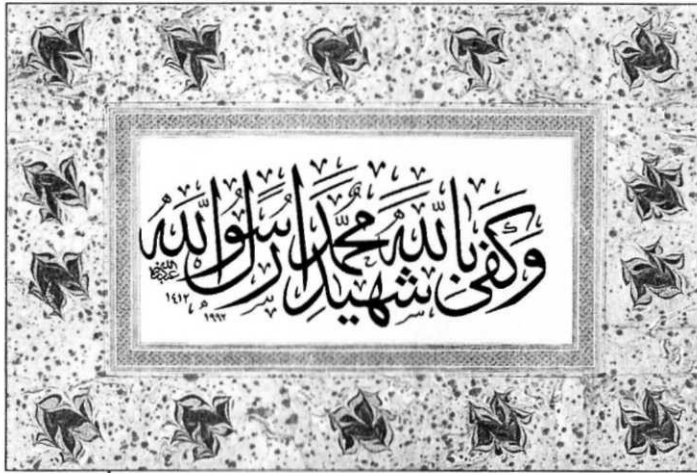 وَكَفَىٰ بِاللَّهِ شَهِيدًا مُحَمَّدٌ رَسُولُ اللَّهِ
١٤١٢
١٩٩٢ م